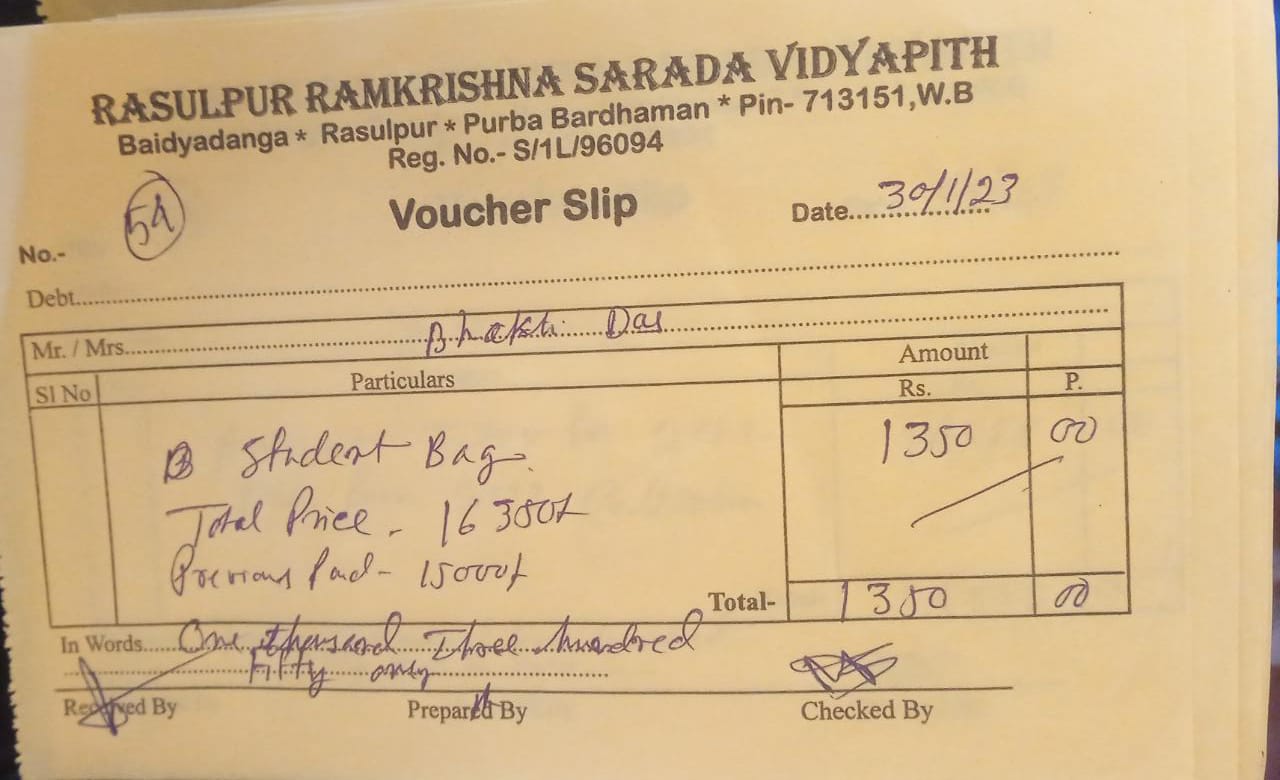 RASULPUR RAMKRISHNA SARADA VIDYAPITH
Baidyadanga * Rasulpur * Purba Bardhaman * Pin- 713151,W.B
Reg. No.- S/1L/96094
Voucher Slip
Date.....30/1/23
No.-
Debt.....
Mr. / Mrs.....Bhakti.....Das.....
Sl No Particulars Amount
Rs. P.
Student Bag. 1350 00
Total Price - 16350/-
Previous Paid - 15000/-
Total- 1350 00
In Words.....One thousand Three hundred
Fifty only
Received By Prepared By Checked By